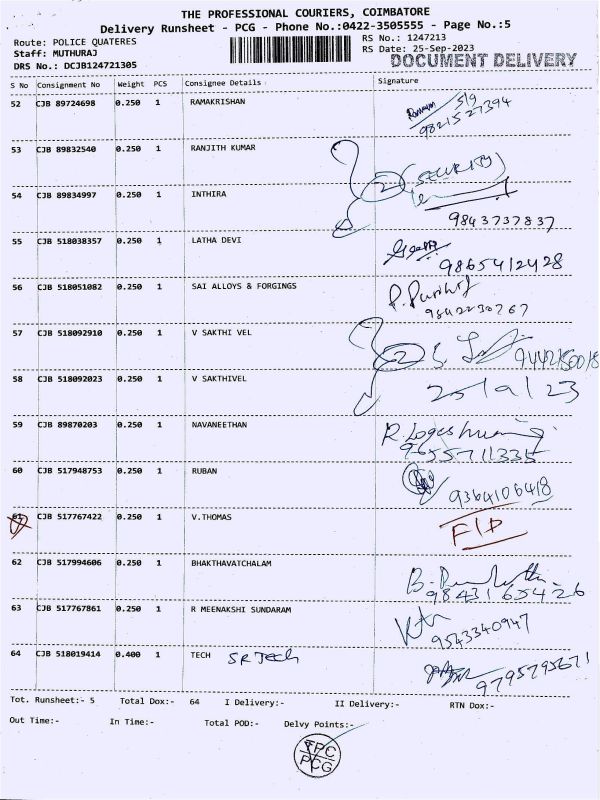 THE PROFESSIONAL COURIERS, COIMBATORE
Delivery Runsheet - PCG - Phone No.:0422-3505555 - Page No.:5
Route: POLICE QUATERES
RS No.: 1247213
Staff: MUTHURAJ
RS Date: 25-Sep-2023
DRS No.: DCJB124721305
DOCUMENT DELIVERY
S No Consignment No Weight PCS Consignee Details Signature
52 CJB 89724698 0.250 1 RAMAKRISHAN
9821527394
53 CJB 89832540 0.250 1 RANJITH KUMAR
2 (SECURITY)
54 CJB 89834997 0.250 1 INTHIRA
9843737837
55 CJB 518038357 0.250 1 LATHA DEVI
9865412428
56 CJB 518051082 0.250 1 SAI ALLOYS & FORGINGS
9842230767
57 CJB 518092910 0.250 1 V SAKTHI VEL
2
58 CJB 518092023 0.250 1 V SAKTHIVEL
25/9/23
59 CJB 89870203 0.250 1 NAVANEETHAN
9655711335
60 CJB 517948753 0.250 1 RUBAN
9364106418
61 CJB 517767422 0.250 1 V.THOMAS
F/D
62 CJB 517994606 0.250 1 BHAKTHAVATCHALAM
9843165426
63 CJB 517767861 0.250 1 R MEENAKSHI SUNDARAM
9543340947
64 CJB 518019414 0.400 1 TECH SR Tech
9795795671
Tot. Runsheet:- 5 Total Dox:- 64 I Delivery:- II Delivery:- RTN Dox:-
Out Time:- In Time:- Total POD:- Delvy Points:-
TPC
PCG